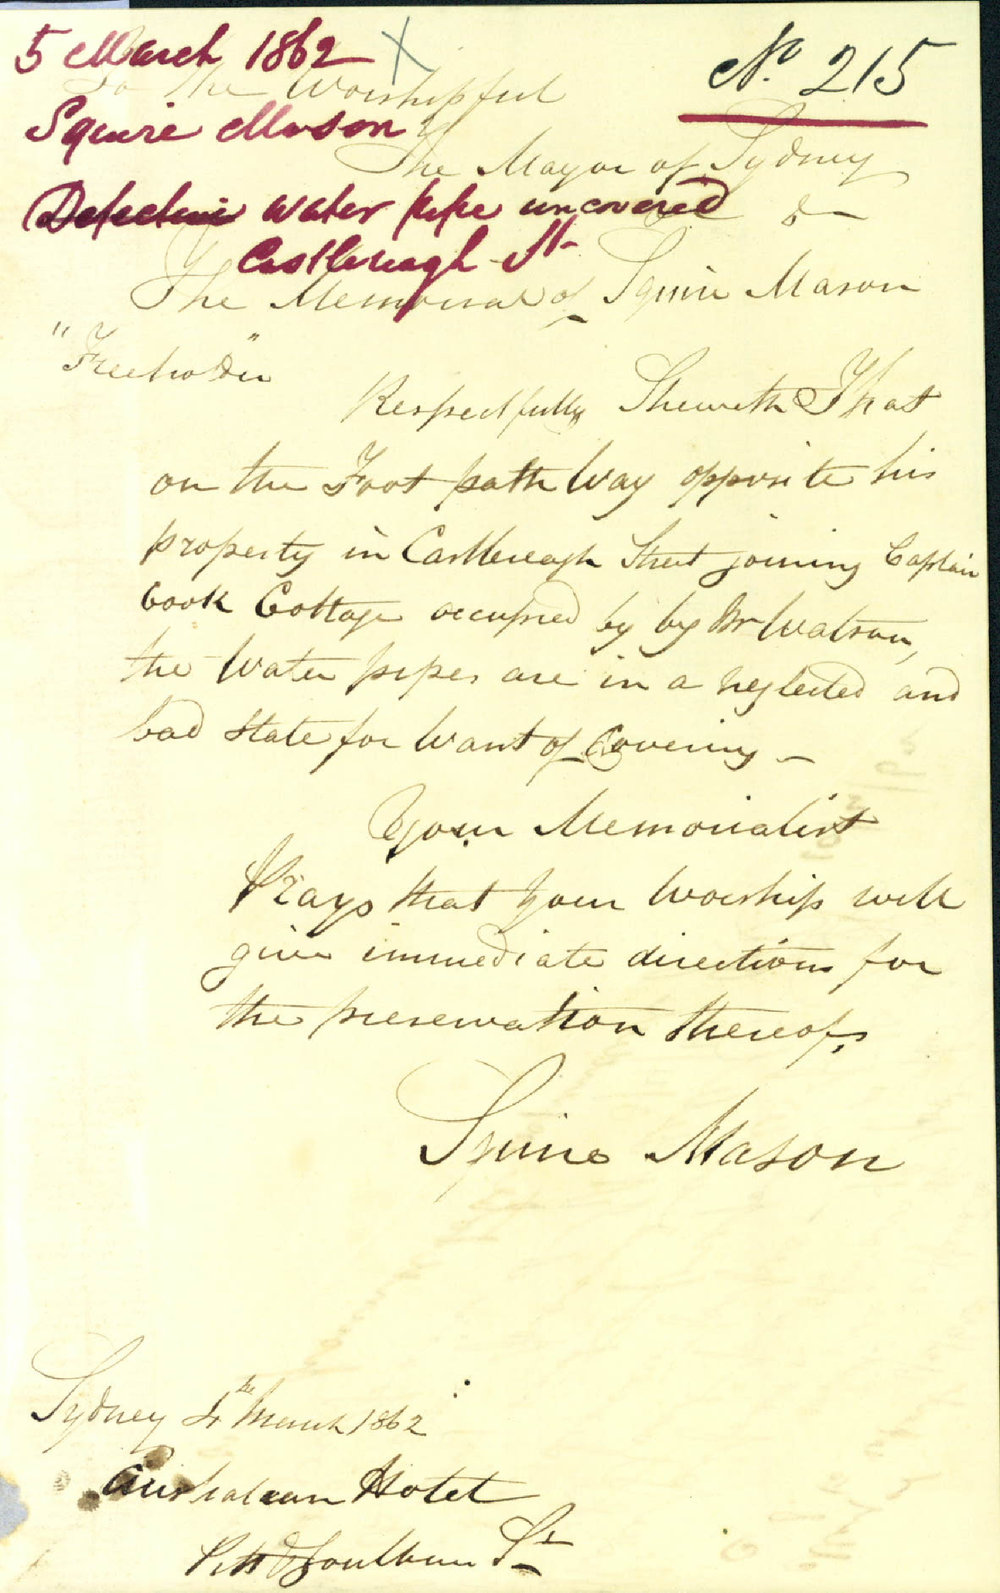 5 March 1862
No. 215
To the Worshipful
Squire Mason
The Mayor of Sydney
Defective water pipe uncovered
Castlereagh St
The Memorial of Squire Mason
"Freeholder"
Respectfully Sheweth That
on the Foot path Way opposite his
property in Castlereagh Street joining Captain
Cook Cottage occupied by by Mr Watson,
the Water pipes are in a neglected and
bad State for Want of Covering –
Your Memorialist
Prays that your Worship will
give immediate directions for
the preservation thereof,
Squire Mason
Sydney 4th March 1862
Australian Hotel
Pitt & Goulburn St